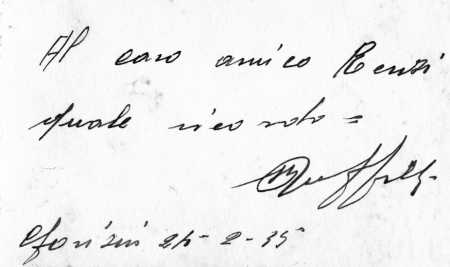 Al caro amico Renzi
quale ricordo =
24-2-35